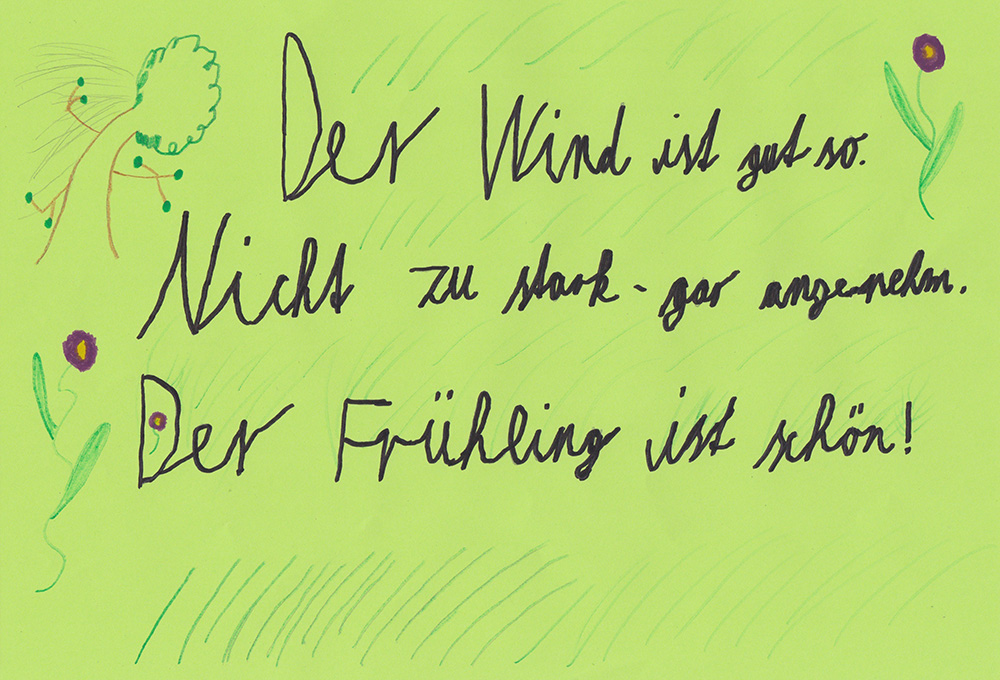 Der Wind ist gut so.
Nicht zu stark - gar angenehm.
Der Frühling ist schön!